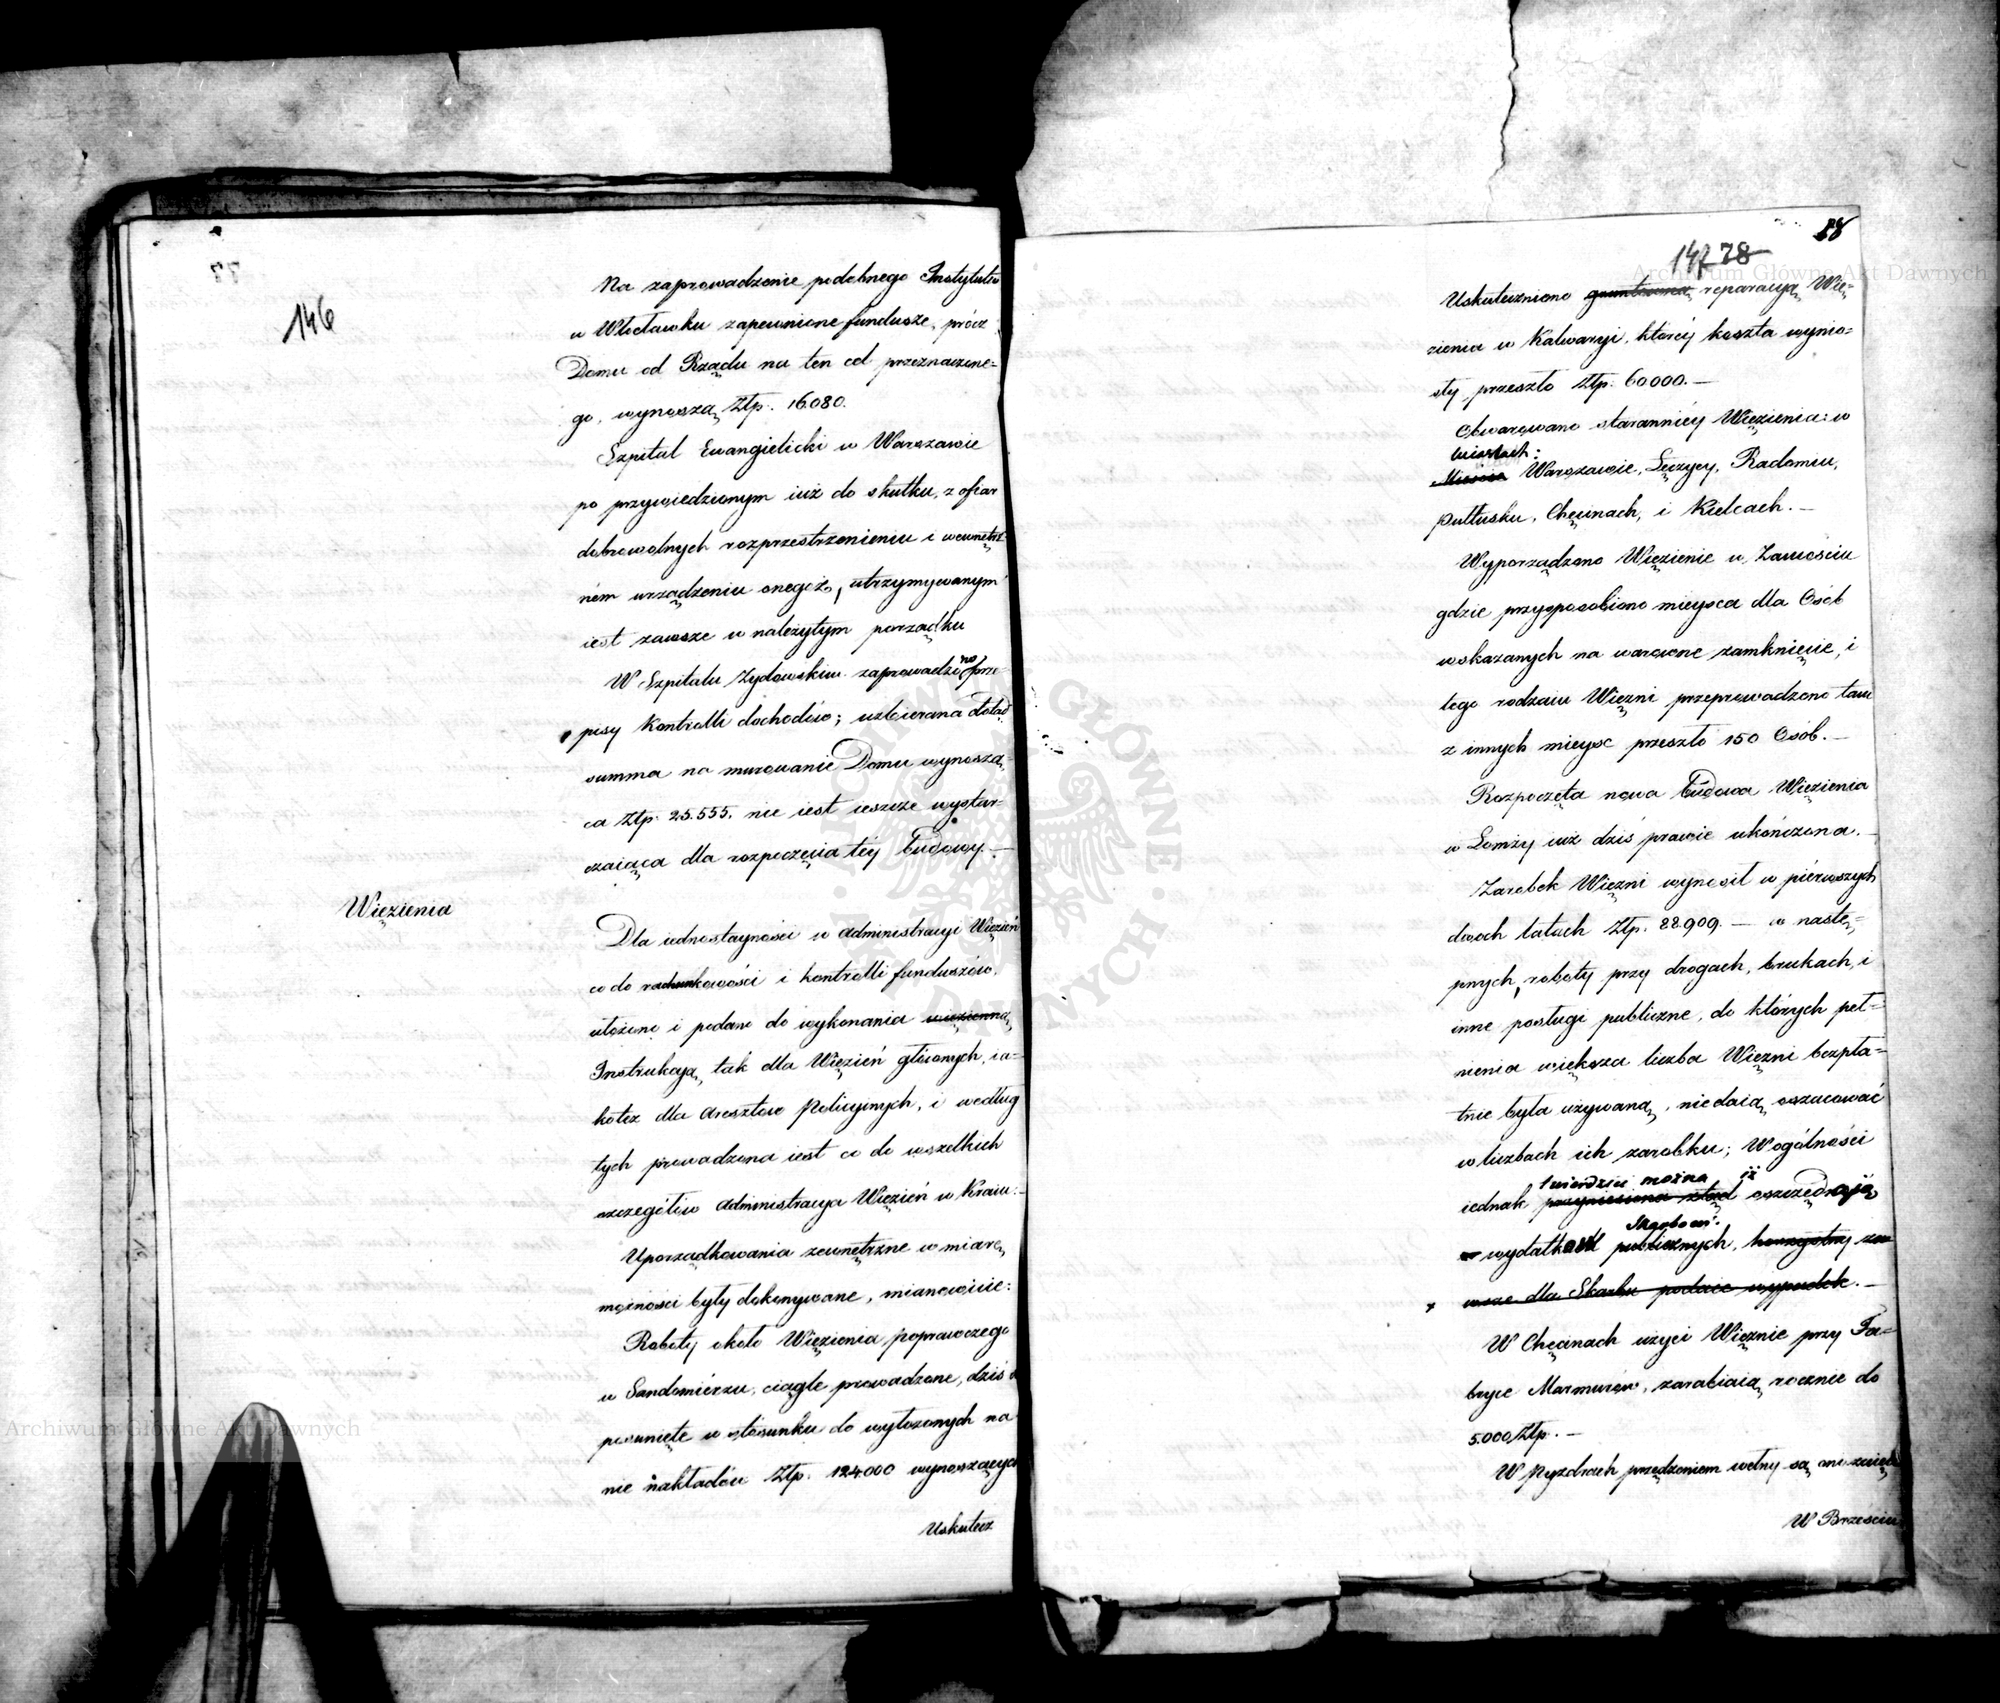 146
Na zaprowadzenie podobnego Instytutu
w Włocławku zapewnione fundusze, prócz
Domu od Rządu na ten cel przeznaczone-
go, wynoszą Złp. 16.080.
Szpital Ewangielicki w Warszawie
po przywiedzionym iuż do skutku, z ofiar
dobrowolnych rozprzestrzenieniu i wewnętrz-
ném urządzeniu onegoż, utrzymywanym
iest zawsze w należytym porządku
W Szpitalu Żydowskim zaprowadzono prze-
pisy Kontrolli dochodów; uzbierana dotąd
summa na murowanie Domu wynoszą-
ca Złp. 25.555. nie iest ieszcze wystar-
czaiąca dla rozpoczęcia téy Budowy. —
Więzienia
Dla iednostayności w Administracyi Więzień
co do rachunkowości i kontrolli funduszów,
ułożono i podano do wykonania więzienną
Instrukcyą, tak dla Więzień głównych, ia-
kotéż dla Aresztów Policyinych, i według
tych prowadzona iest co do wszelkich
szczegółów Administracya Więzień w Kraiu.
Uporządkowania zewnętrzne w miarę
możności były dokonywane, mianowicie:
Roboty około Więzienia poprawczego
w Sandomiérzu, ciągle prowadzone, dziś
posunięte w stosunku do wyłożonych na
nie nakładów Złp. 124.000 wynoszących
Uskutecz
28
147 78
Uskuteczniono gruntowną reparacyą Wię-
zienia w Kalwaryi, któréy koszta wynio-
sły przeszło Złp. 60000. —
Obwarowano staranniéy Więzienia: w
miastach:
Mieście Warszawie, Łęczycy, Radomiu,
Pułtusku, Chęcinach, i Kielcach. —
Wyporządzono Więzienie w Zamościu
gdzie przysposobiono mieysca dla Osób
wskazanych na warowne zamknięcie, i
tego rodzaiu Więzni przeprowadzono tam
z innych mieysc przeszło 150 Osób. —
Rozpoczęta nowa Budowa Więzienia
w Łomży iuż dziś prawie ukończona. —
Zarobek Więzni wynosił w piérwszych
dwóch latach Złp. 22.909. — w nastę-
pnych, roboty przy drogach, brukach, i
inne posługi publiczne, do których peł-
nienia większa liczba Więzni bezpła-
tnie była używaną, niedaią oszacować
w liczbach ich zarobku; Wogólności
twierdzić można iż
iednak przyniesiona ztąd oszczędzaią
Skarbowi.
w wydatkach publicznych, korzystny za-
wsze dla Skarbu podaie wypadek. —
W Chęcinach użyci Więznie przy Fa-
bryce Marmurów, zarabiaią rocznie do
5.000 Złp. —
W Pyzdrach przędzeniem wełny są
W Brześciu
Archiwum Główne Akt Dawnych
Archiwum Główne Akt Dawnych
ARCHIWUM GŁÓWNE AKT DAWNYCH